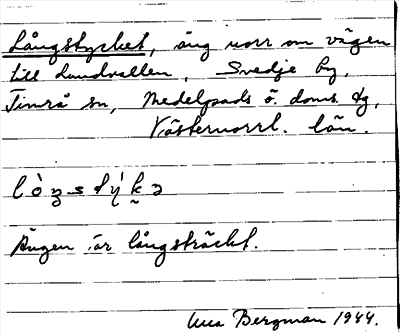 Långstycket, äng norr om vägen
till Lundvallen, Svedje by,
Timrå sn, Medelpads ö. doms. dg,
Västernorrl. län.
lòŋstýkə
Ängen är långsträckt.
Bergman 1944.